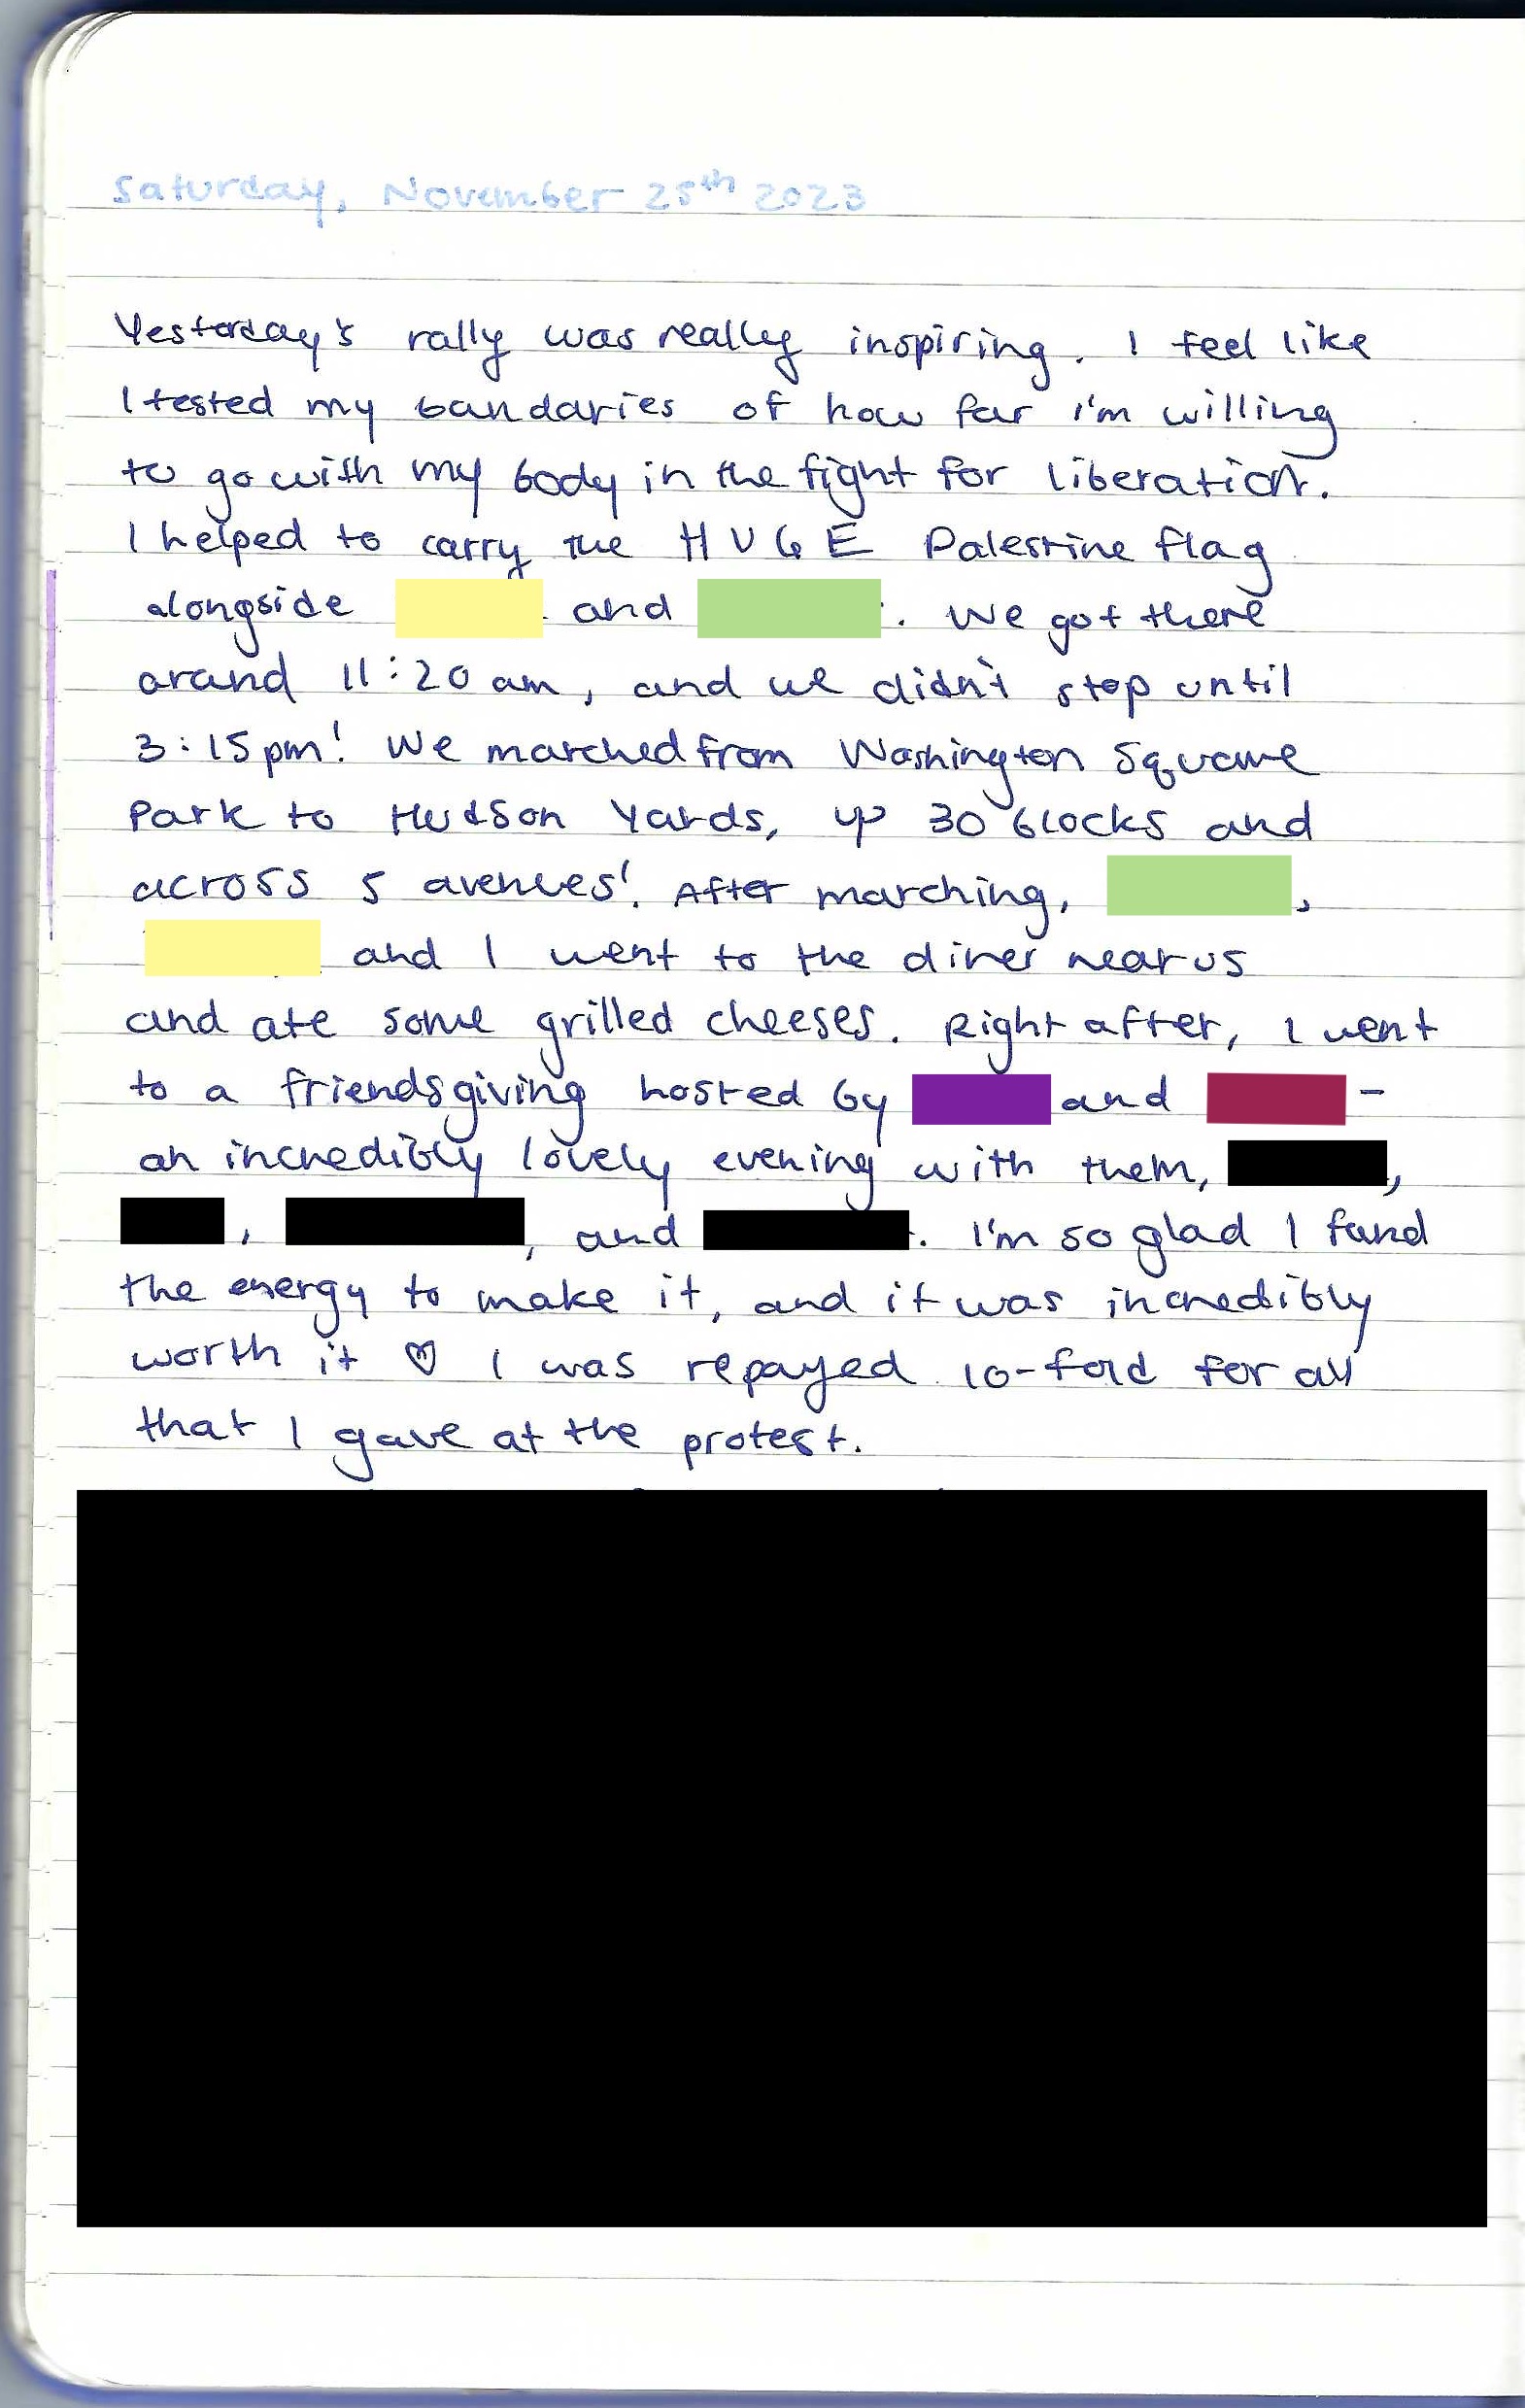 Saturday, November 25th 2023
Yesterday's rally was really inspiring. I feel like
I tested my boundaries of how far i'm willing
to go with my body in the fight for liberation.
I helped to carry the HUGE Palestine flag
alongside and . We got there
around 11:20 am, and we didn't stop until
3:15pm! We marched from Washington Square
Park to Hudson Yards, up 30 blocks and
across 5 avenues! After marching, ,
and I went to the diner near us
and ate some grilled cheeses. Right after, I went
to a friendsgiving hosted by and –
an incredibly lovely evening with them, ,
, , and . I'm so glad I found
the energy to make it, and it was incredibly
worth it ♡ I was repayed 10-fold for all
that I gave at the protest.